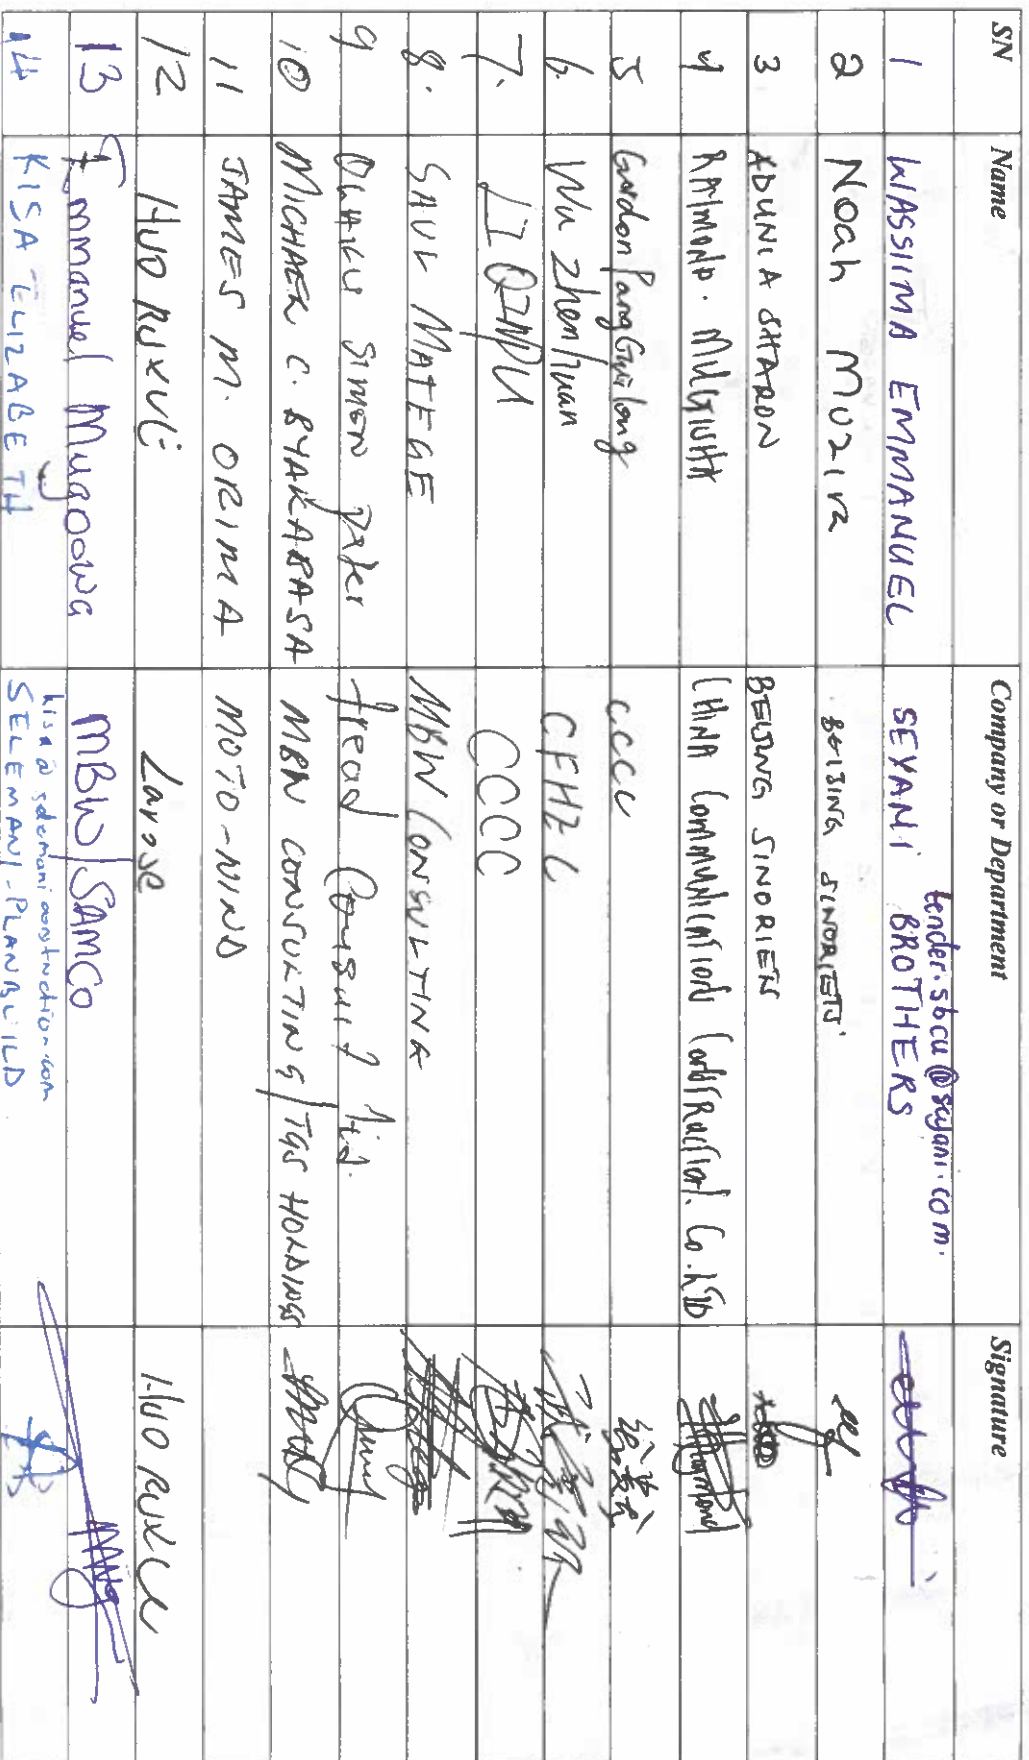 SN Name Company or Department Signature
tender.sbcu@seyani.com.
1 WASSIMA EMMANUEL SEYANI BROTHERS
2 Noah Muzira BEIJING SINORIETN.
3 ADUNIA SHARON BEIJING SINORIEN
4 RAYMOND. MUGISHA CHINA COMMUNICATION CONSTRUCTION. Co. LTD
5 Gordon Pang Guilong CCCC
6. Wu Zhenhuan CFHEC
7. LI QINPU CCCC
8. SAUL MATEGE MBW CONSULTING
9 Simon Peter Consult Ltd.
10 MICHAEL C. BYAKABASA MBW CONSULTING/TGS HOLDINGS
11 JAMES M. ORIMA MOTO-NIND
12 HUO RUXUE Larose HUO RUXUE
13 Emmanuel Mugoowa MBW/SAMCO
kisa@selemaniconstruction.com
14 KISA ELIZABETH SELEMANI-PLANBUILD